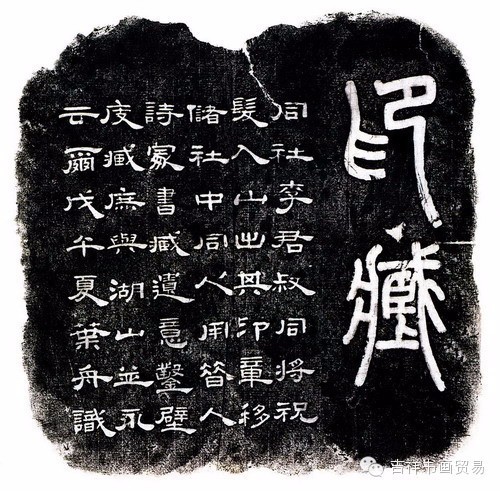 印藏
同社李君叔同將祝
髮入山出其印章移
儲社中同人用昔人
詩冢書藏遺意鑿壁
庋藏庶與湖山並永
云爾戊午夏葉舟識
吉祥书画贸易